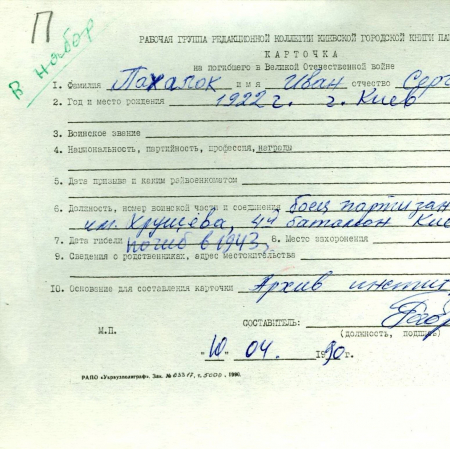 П
В набор
РАБОЧАЯ ГРУППА РЕДАКЦИОННОЙ КОЛЛЕГИИ КИЕВСКОЙ ГОРОДСКОЙ КНИГИ ПА
КАРТОЧКА
на погибшего в Великой Отечественной войне
1. Фамилия Пахалок имя Иван отчество Серг
2. Год и место рождения 1922 г. г. Киев
3. Воинское звание
4. Национальность, партийность, профессия, награды
5. Дата призыва и каким райвоенкоматом
6. Должность, номер воинской части и соединения боец партизан
им. Хрущёва, 4й батальон Кие
7. Дата гибели погиб в 1943. 8. Место захоронения
9. Сведения о родственниках, адрес местожительства
10. Основание для составления карточки Архив инстит
СОСТАВИТЕЛЬ:
М.П. (должность, подпись)
"10" 04 1990 г.
РАПО «Укрвузполиграф». Зак. № 03317, т. 5000, 1990.